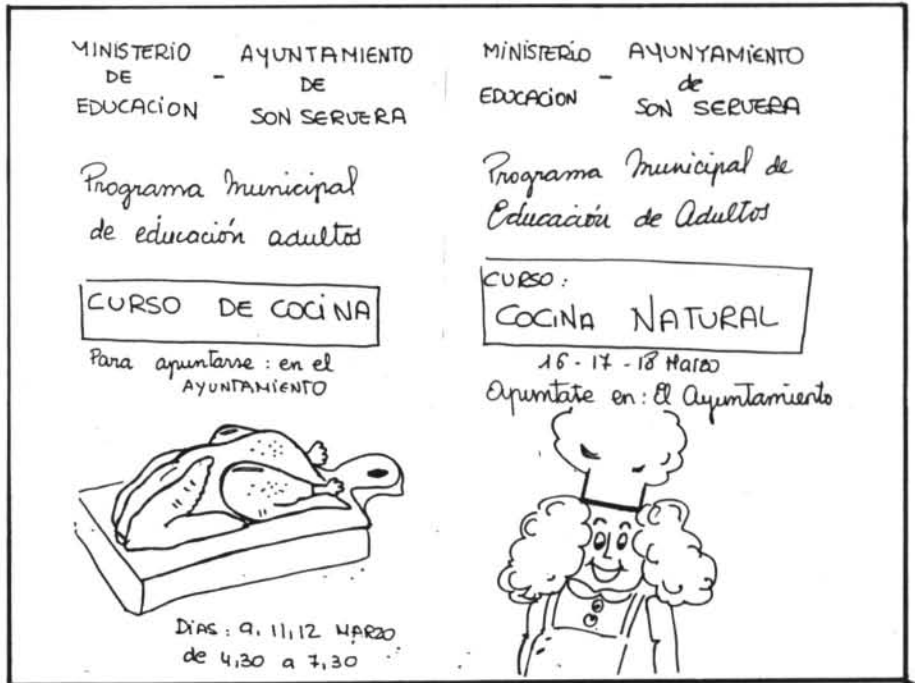 MINISTERIO
DE
EDUCACION
-
AYUNTAMIENTO
DE
SON SERVERA
Programa Municipal
de educación adultos
CURSO DE COCINA
Para apuntarse : en el
AYUNTAMIENTO
DIAS : 9, 11, 12 MARZO
de 4,30 a 7,30
MINISTERIO
EDUCACION
-
AYUNYAMIENTO
de
SON SERVERA
Programa Municipal de
Educación de Adultos
CURSO :
COCINA NATURAL
16 - 17 - 18 Marzo
Apuntate en : El Ayuntamiento